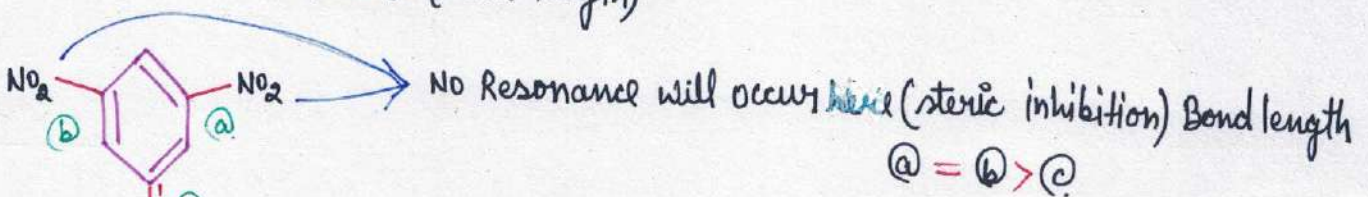 NO2 NO2 No Resonance will occur here (steric inhibition) Bond length
ⓑ ⓐ
ⓐ = ⓑ > ⓒ